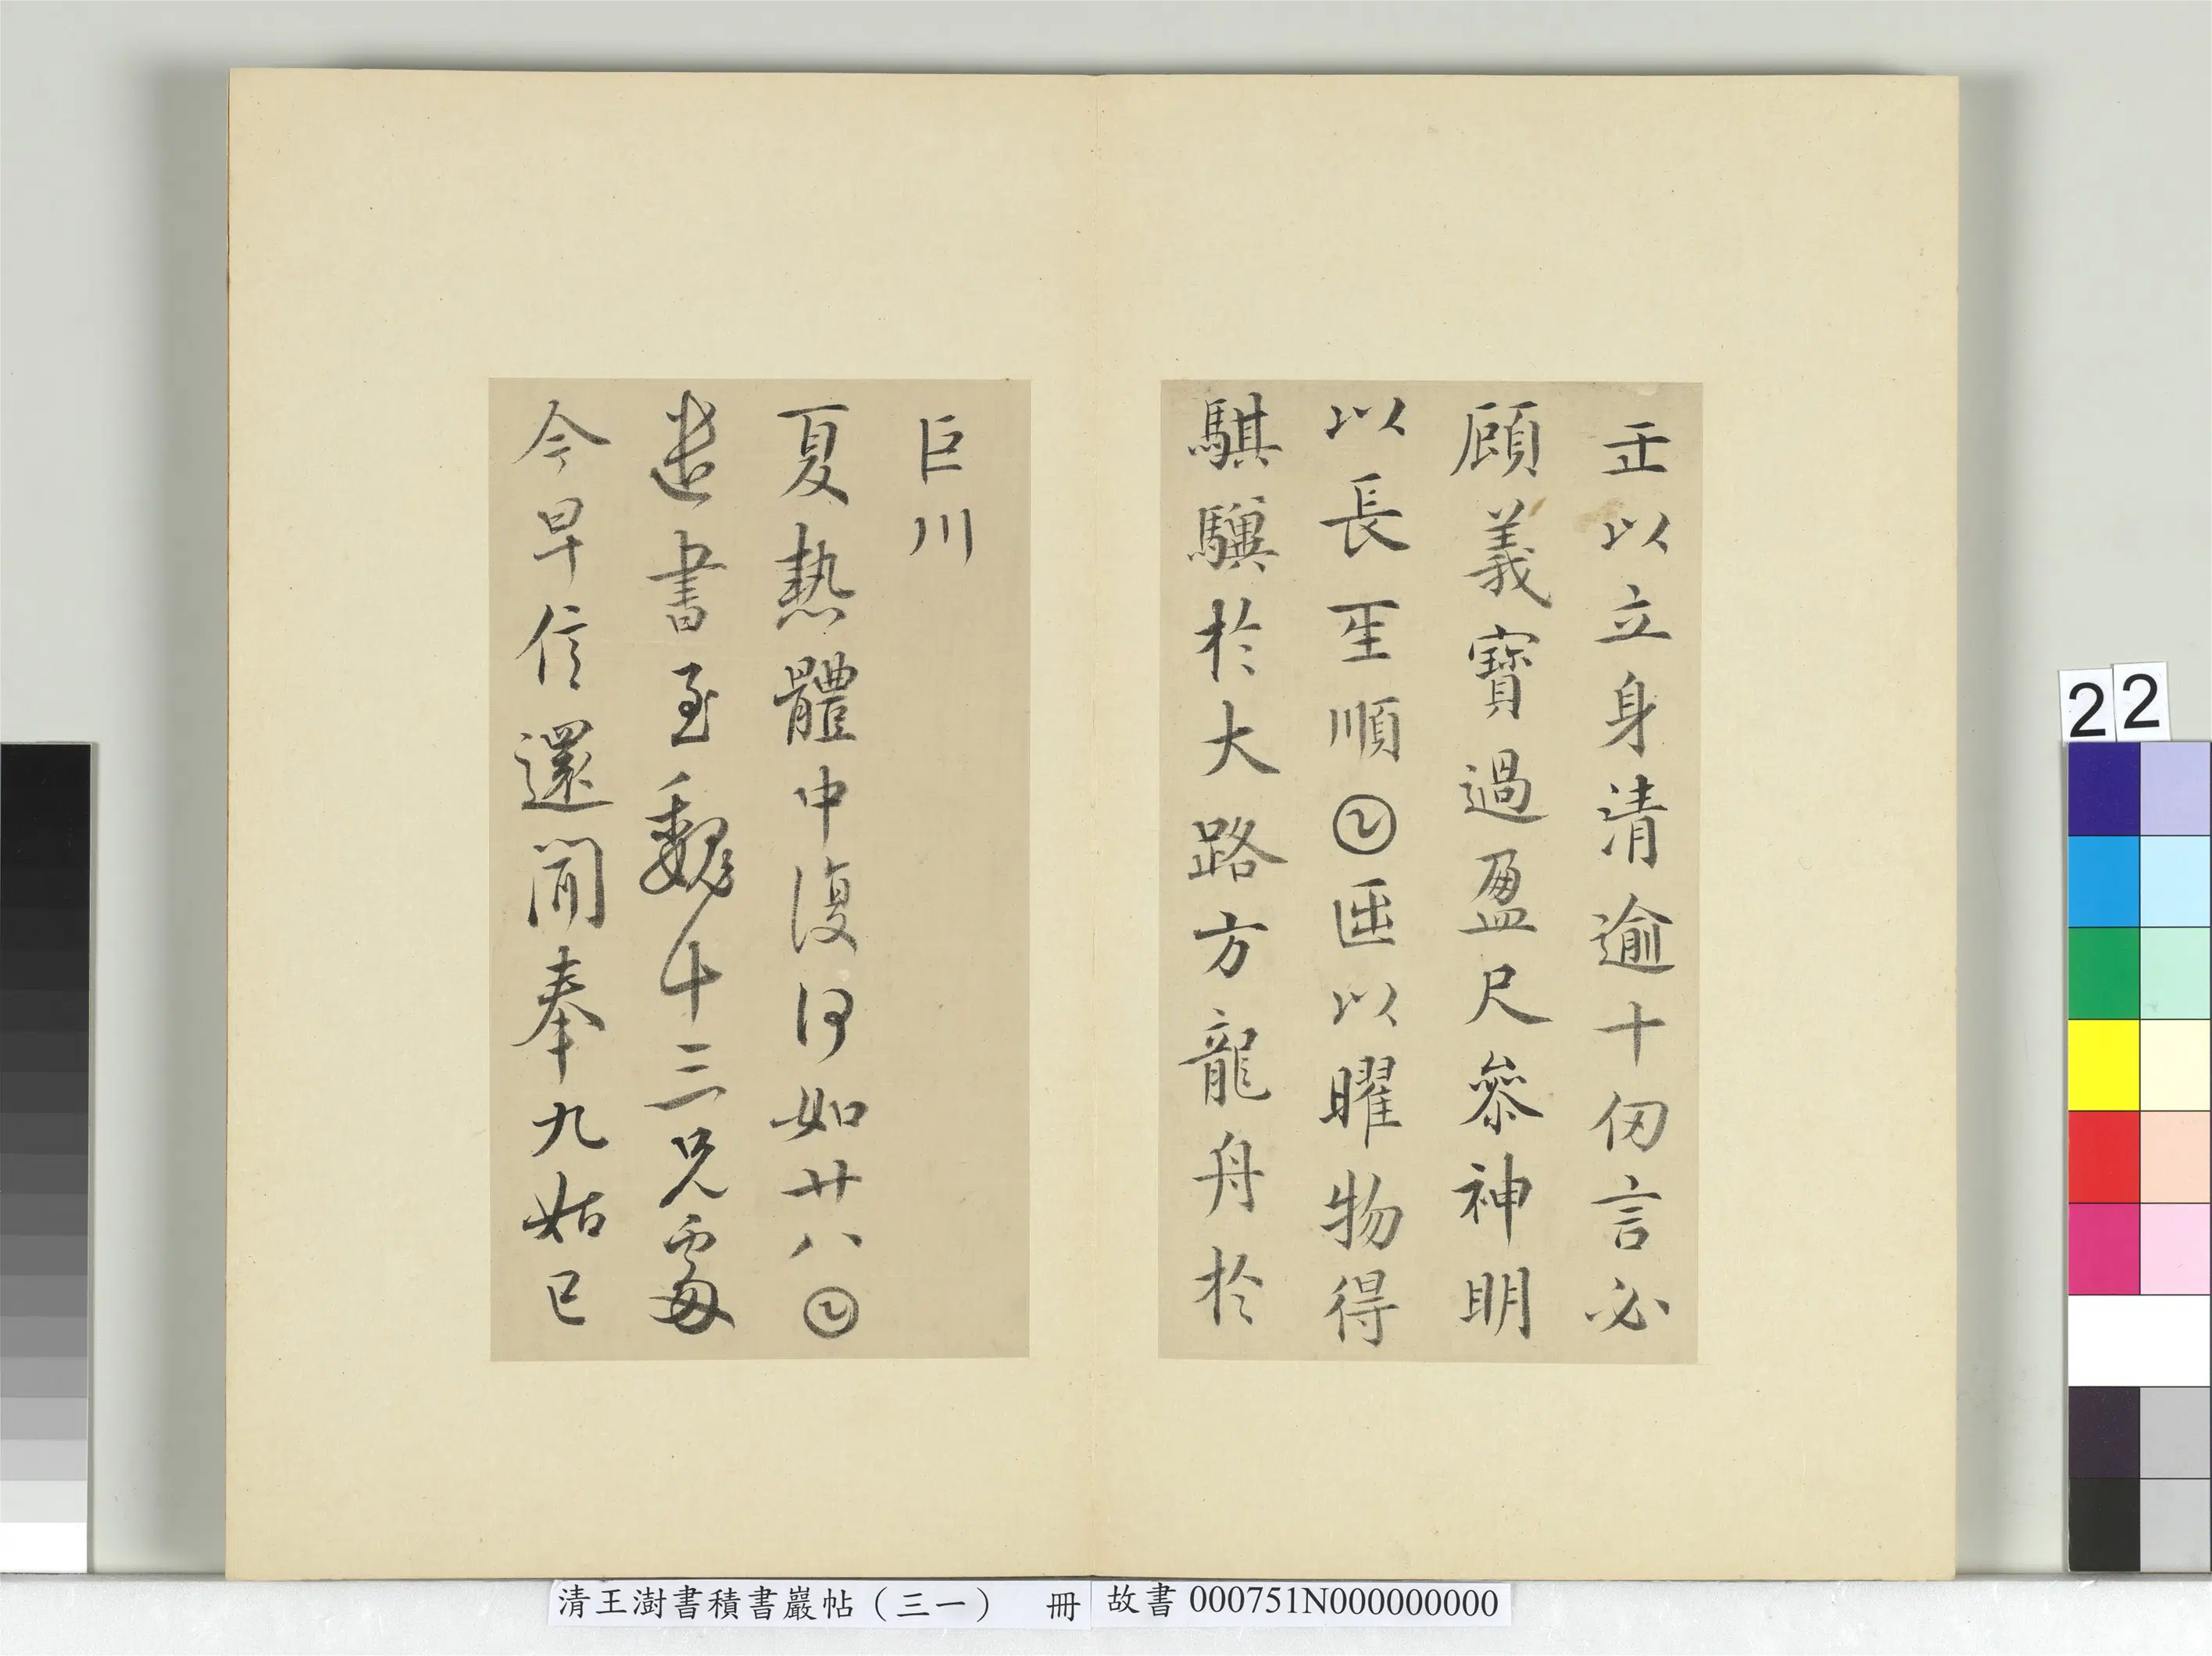 正以立身清逾十仞言必
顧義寶過盈尺參神明
以長𤯔順𡆠𠥱以曜物得
騏驥於大路方龍舟於
巨川
夏熱體中復何如廿八𡆠
遣書至魏十三兄處
今早信還閒奉九姑已
22
清王澍書積書巖帖（三一） 冊
故書 000751N000000000